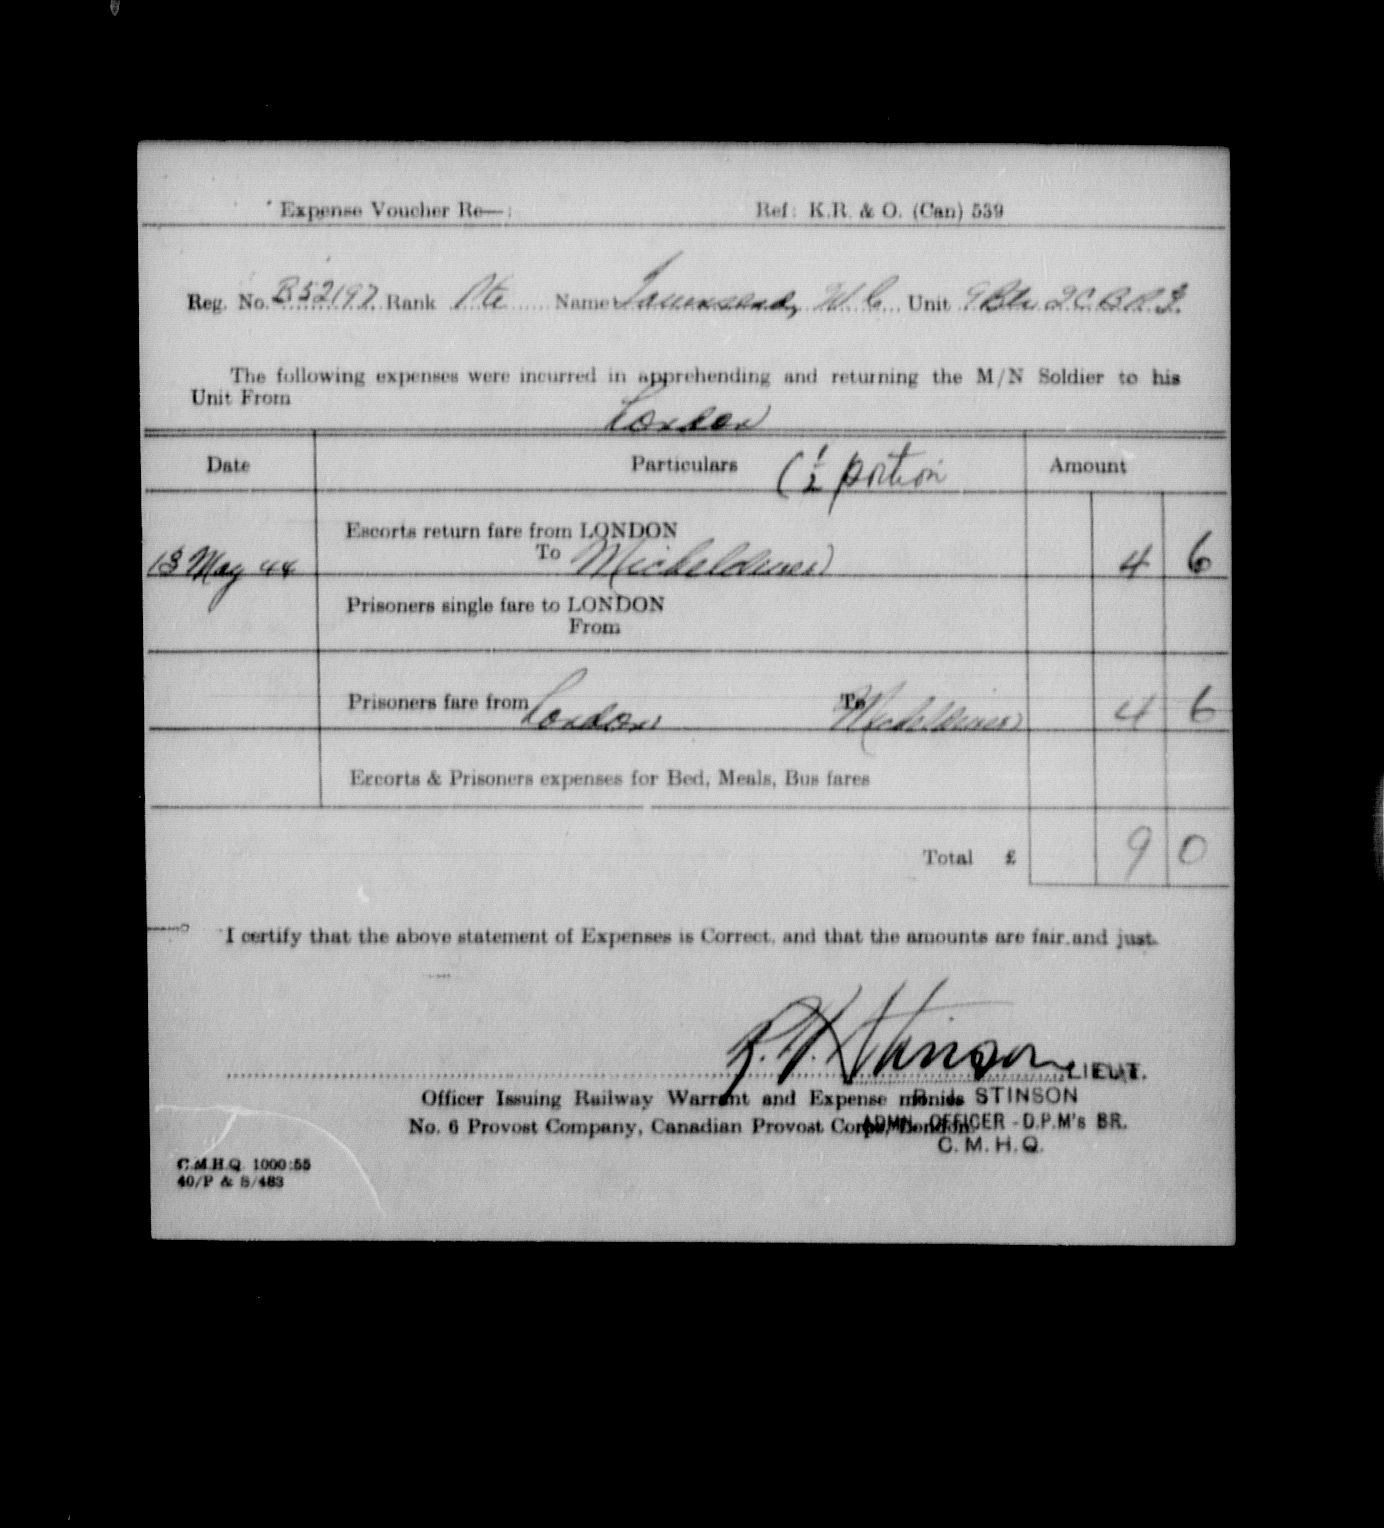 Expense Voucher Re—: Ref: K.R. & O. (Can) 539
Reg. No. B52197 Rank Pte Name Townsend, W.C. Unit 9 Bln 2 C.B.R.G.
The following expenses were incurred in apprehending and returning the M/N Soldier to his
Unit From
London
Date Particulars (½ portion Amount
Escorts return fare from LONDON
13 May 44 To Micheldever 4 6
Prisoners single fare to LONDON
From
Prisoners fare from London To Micheldever 4 6
Escorts & Prisoners expenses for Bed, Meals, Bus fares
Total £ 9 0
I certify that the above statement of Expenses is Correct, and that the amounts are fair and just.
Stinson LIEUT.
Officer Issuing Railway Warrant and Expense monies STINSON
No. 6 Provost Company, Canadian Provost Corps, London. ADMN. OFFICER - D.P.M's BR.
C.M.H.Q.
C.M.H.Q. 1000:55
40/P & S/483